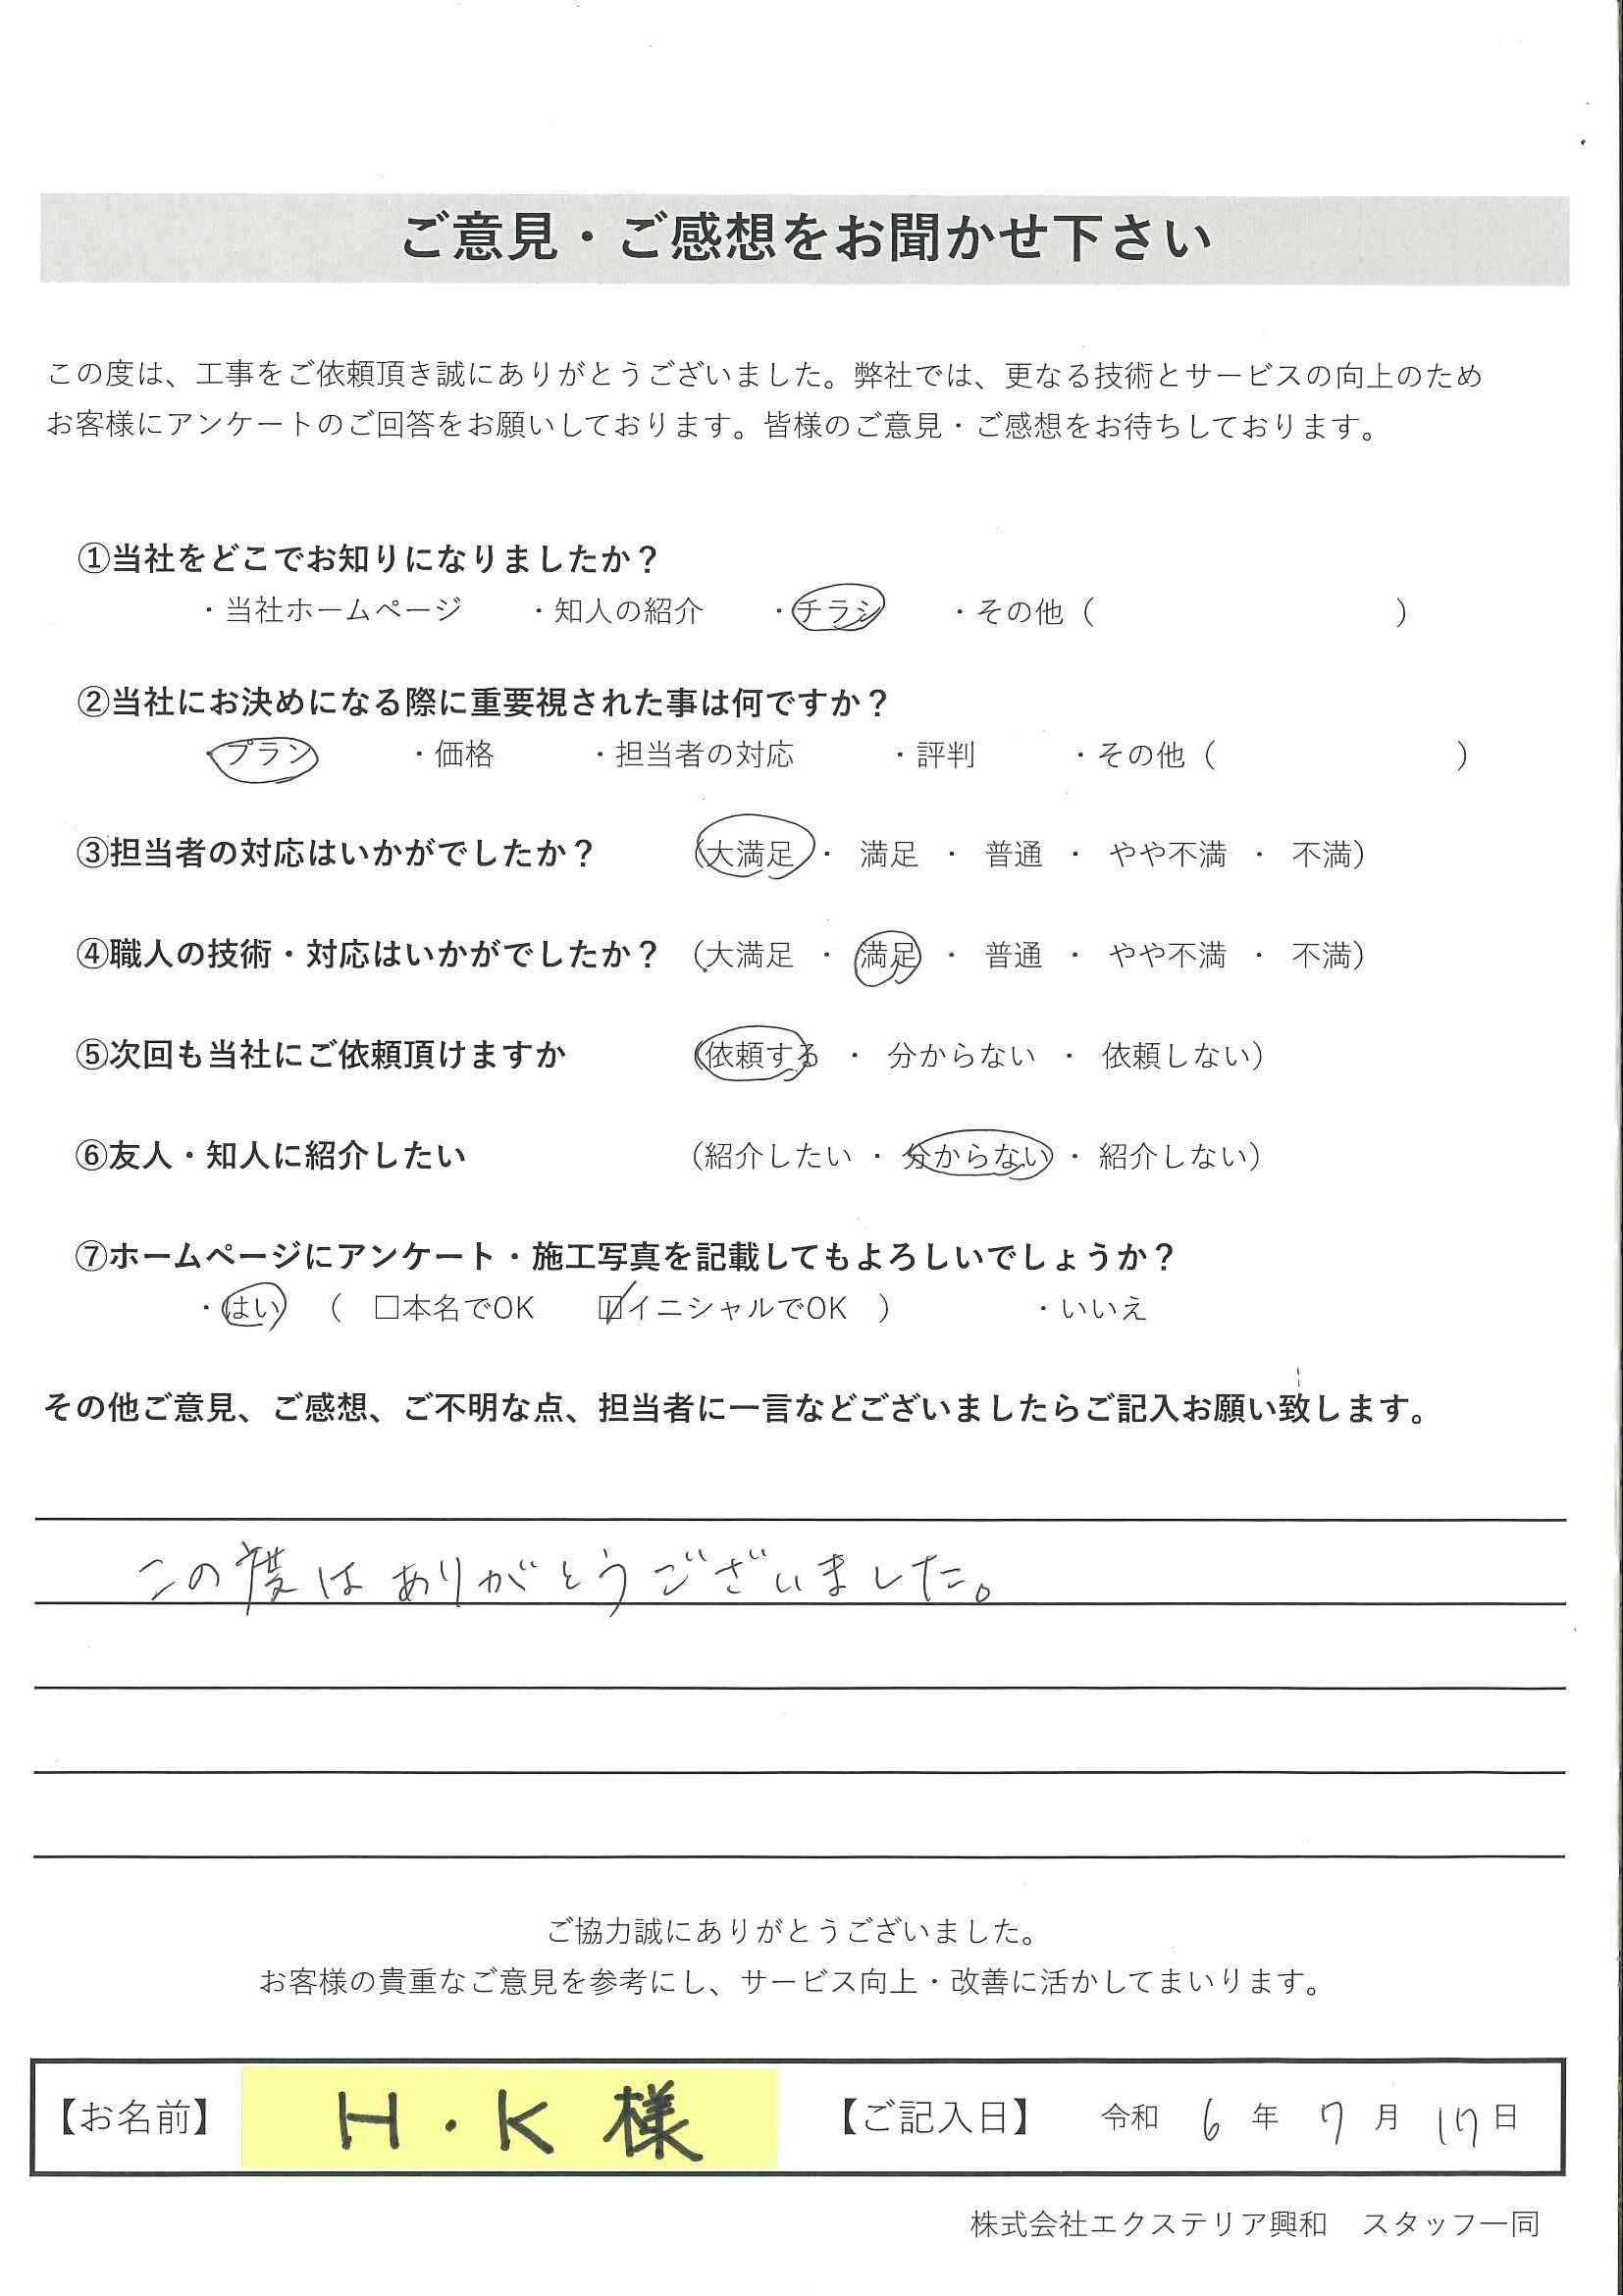 ご意見・ご感想をお聞かせ下さい
この度は、工事をご依頼頂き誠にありがとうございました。弊社では、更なる技術とサービスの向上のため
お客様にアンケートのご回答をお願いしております。皆様のご意見・ご感想をお待ちしております。
①当社をどこでお知りになりましたか？
・当社ホームページ ・知人の紹介 ・チラシ ・その他（ ）
②当社にお決めになる際に重要視された事は何ですか？
・プラン ・価格 ・担当者の対応 ・評判 ・その他（ ）
③担当者の対応はいかがでしたか？ （大満足 ・ 満足 ・ 普通 ・ やや不満 ・ 不満）
④職人の技術・対応はいかがでしたか？ （大満足 ・ 満足 ・ 普通 ・ やや不満 ・ 不満）
⑤次回も当社にご依頼頂けますか （依頼する ・ 分からない ・ 依頼しない）
⑥友人・知人に紹介したい （紹介したい ・ 分からない ・ 紹介しない）
⑦ホームページにアンケート・施工写真を記載してもよろしいでしょうか？
・はい （ □本名でOK ☑イニシャルでOK ） ・いいえ
その他ご意見、ご感想、ご不明な点、担当者に一言などございましたらご記入お願い致します。
この度はありがとうございました。
ご協力誠にありがとうございました。
お客様の貴重なご意見を参考にし、サービス向上・改善に活かしてまいります。
【お名前】 H・K 様 【ご記入日】 令和 6 年 7 月 17 日
株式会社エクステリア興和 スタッフ一同